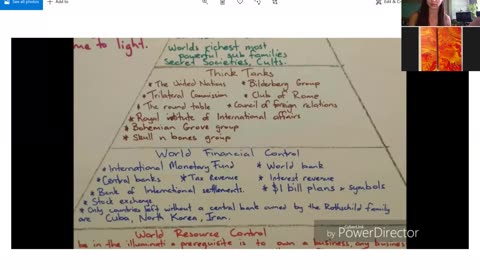 See all photos
Add to
Edit & C
me to light.
Worlds richest most
powerful sub families
Secret Societies, Cults.
Think Tanks
* The United Nations * Bilderberg Group
* Trilateral Commission * Club of Rome
* The round table * Council of foreign relations
* Royal institute of International affairs
* Bohemian Grove group
* Skull n bones group
World Financial Control
* International Monetary Fund * World bank
* Central banks * Tax revenue * Interest revenue
* Bank of International settlements. * $1 bill plans & symbols
* Stock exchange
* Only countries left without a central bank owned by the Rothschild family
are Cuba, North Korea, Iran.
World Resource Control
be in the illuminati a prerequisite is to own a business, any business
by PowerDirector